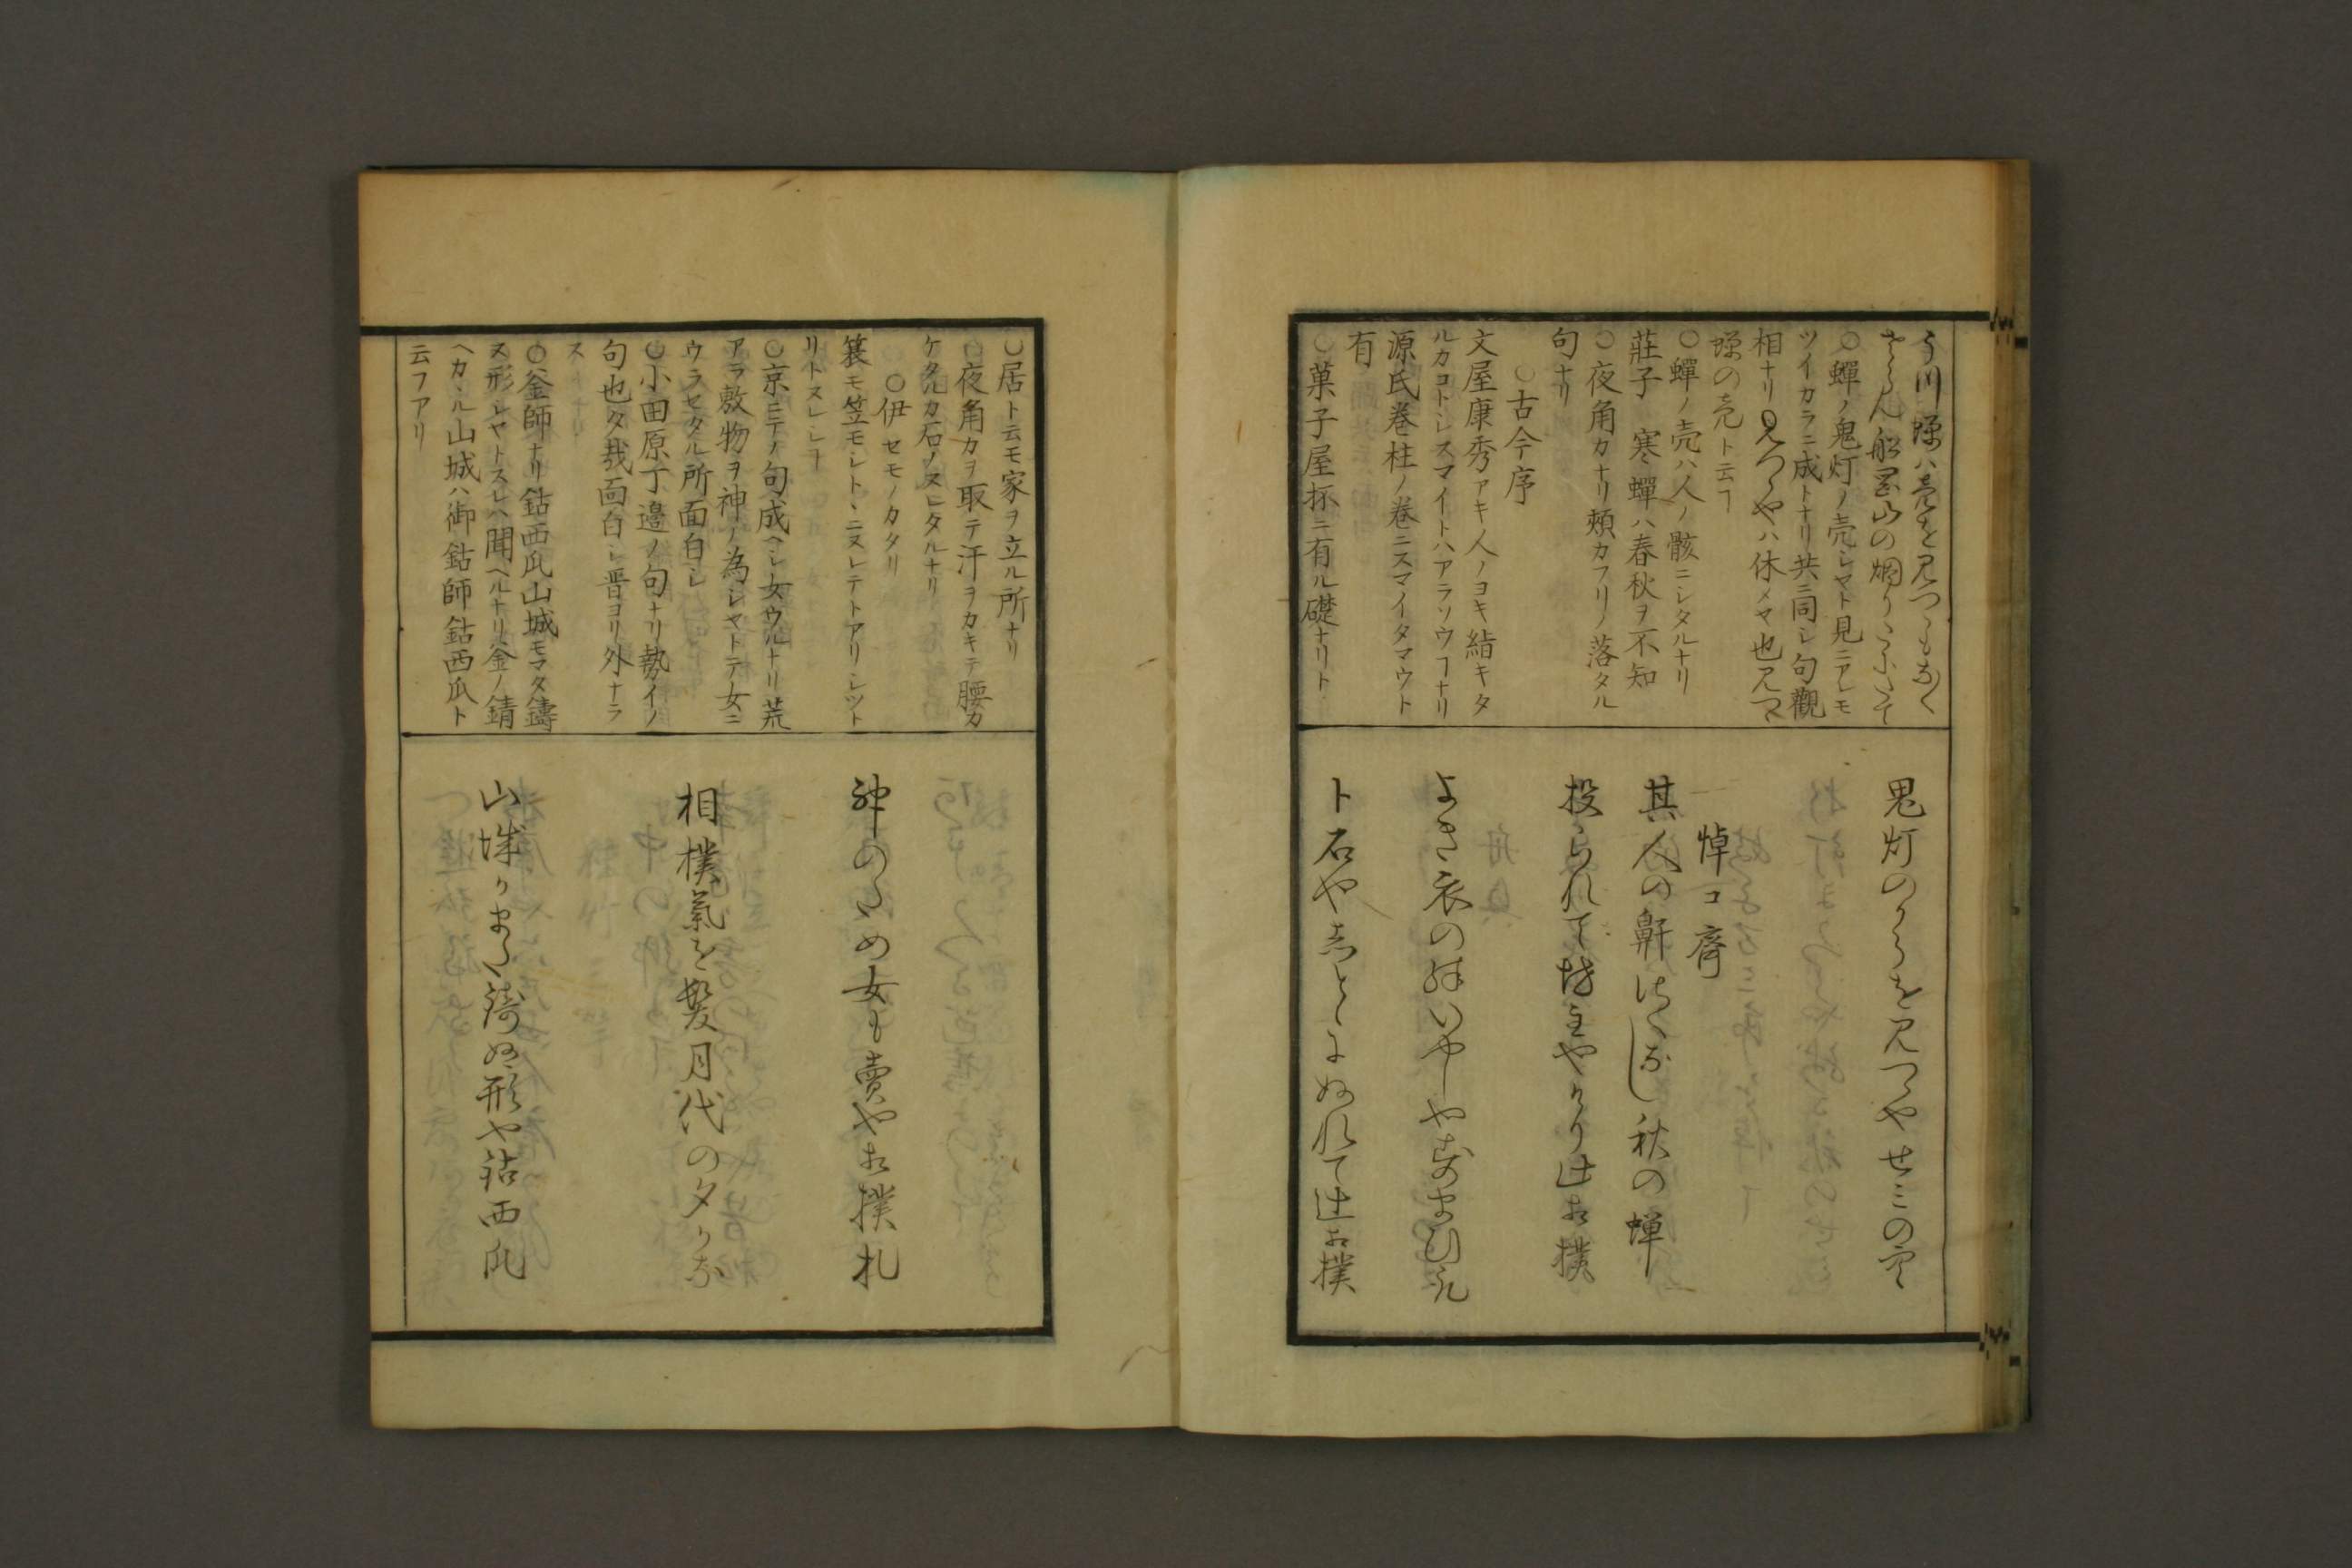 う川蝉ハ壳を見つゝもなく
さらん船岡山の烟りたにたて
〇蟬ノ鬼灯ノ壳シヤト見ニアレモ
ツイカラニ成トナリ共ニ同シ句觀
相ナリ見つゝやハ休メヤ也見つゝ
蝉の壳ト云ヿ
〇蟬ノ壳ハ人ノ骸ニシタルナリ
莊子ノ寒蟬ハ春秋ヲ不知
〇夜角力ナリ頬カフリノ落タル
句ナリ
〇古今序
文屋康秀アキ人ノヨキ絹キタ
ルカコトシスマイトハアラソウヿナリ
源氏巻柱ノ巻ニスマイタマウト
有
〇菓子屋抔ニ有ル礎ナリト
鬼灯のからを見つゝやせミの壳
悼コ斎
其人の鼾さへなし秋の蝉
投られて坊主やけり辻相撲
よき衣の殊いやしや
ト石や志とゝにぬれて辻相撲
〇居ト云モ家ヲ立ル所ナリ
〇夜角カヲ取テ汗ヲカキテ腰カ
ケタルカ石ノヌレタルナリ
〇伊セモノカタリ
簑モ笠モシトヽニヌレテトアリシツト
リトヌレシヿ
〇京ニテノ句成ヘシ女ウルナリ荒
アラ敷物ヲ神ノ為シヤトテ女ニ
ウラセタル所面白シ
〇小田原丁邉ノ句ナリ勢イノ
句也夕哉面白シ晋ヨリ外ナラ
スナリ
〇釜師ナリ鈷西瓜山城モマタ鑄
ヌ形シヤトスレハ聞ヘルナリ釜ノ錆
ヘカヽル山城ハ御鈷師鈷西瓜ト
云フアリ
神のため女も賣やお撲札
相撲氣を髪月代の夕かな
山城かまた鑄ぬ形や鈷西瓜